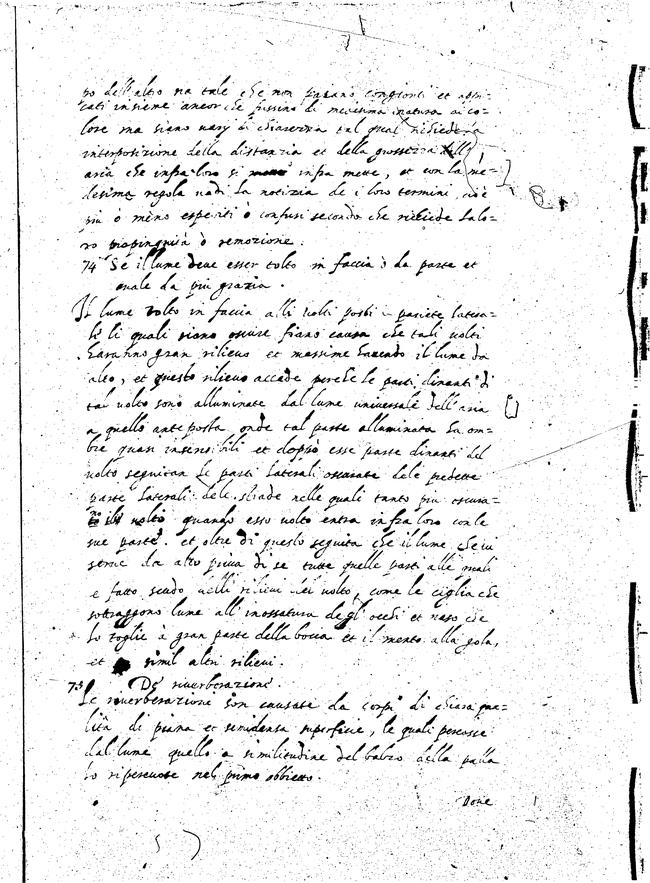 no dell'altro ma tale che non paiano congionti et apici-
cati insieme ancor che fussino di medesima natura di co-
lore ma siano varij di chiarezza tal qual richiederà
interpositione della distanzia et della grossezza dell'
aria che infra loro si infra mette, et con la me-
desima regola vadi la notizia de i loro termini, cioè
più ò meno espediti ò confusi secondo che richiede la lo-
ro propinquità ò remozione.
74 Se il lume deve esser tolto in faccia ò da parte et
quale da più grazia.
Il lume tolto in faccia alli volti posti a pariete latera-
li li quali siano oscure fiano causa che tali volti
haranno gran rilievo et massime havendo il lume da
alto, et questo rilievo accade perche le parti dinanti di
tal volto sono alluminate dal lume universale dell'aria
a quello anteposta, onde tal parte alluminata ha om-
bre quasi insensibili et doppo esse parte dinanti del
volto seguitan le parti laterali oscurate dele predette
pariete laterali dele strade nelle quali tanto più oscura-
no il volto quando esso volto entra infra loro con le
sue parte. et oltre di questo seguita che il lume che vi
scende da alto priva di se tutte quelle parti alle quali
e fatto scudo delli rilievi del volto, come le ciglia che
sottraggono lume all'inossatura degli occhi et naso che
lo toglie a gran parte della bocca et il mento alla gola,
et simil altri rilievi.
75 De riverberazione.
Le riverberazione son causate da corpi di chiara qua-
lità di piana et semidensa superficie, le quali percosse
dal lume quello a similitudine del balzo della palla
lo ripercuote nel primo obbietto.
Dove